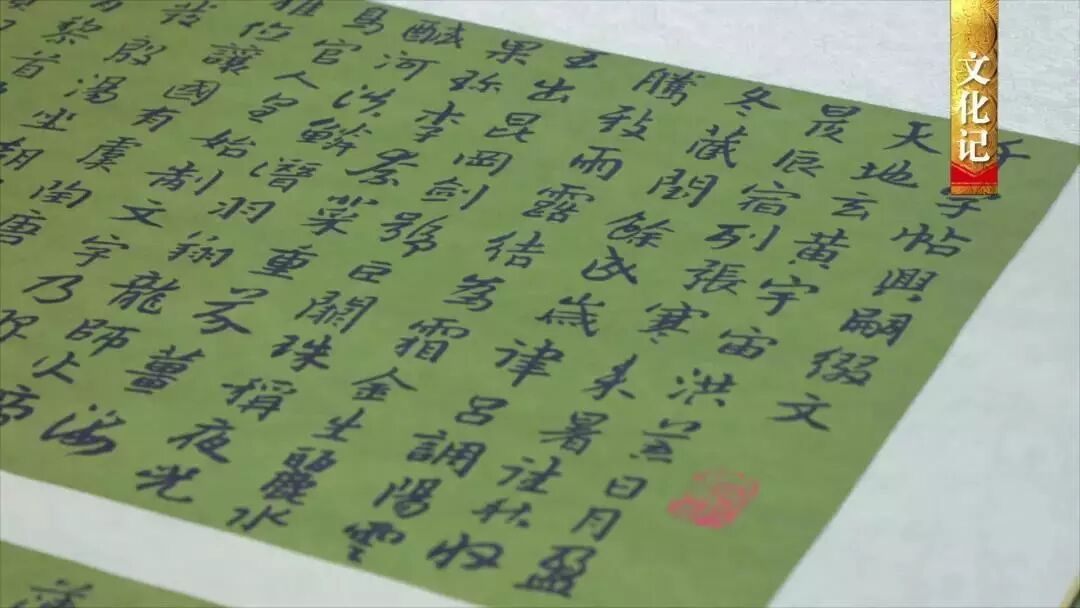 文化记
千字帖興嗣綴文
天地玄黃宇宙洪荒日月盈
昃辰宿列張寒來暑往秋收
冬藏閏餘成歲律呂調陽雲
騰致雨露結為霜金生麗水
玉出昆岡劍號巨闕珠稱夜光
果珍李柰菜重芥薑海
鹹河淡鱗潛羽翔龍師火帝
鳥官人皇始制文字乃服
推位讓國有虞陶唐
殷湯坐朝
黎首